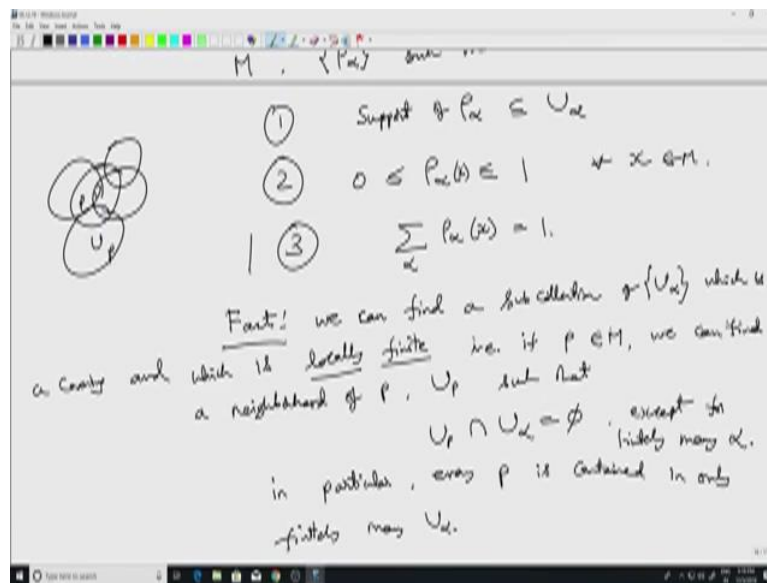 M , {ρα} such
① Support of ρα ⊆ Uα
② 0 ≤ ρα(x) ≤ 1 ∀ x ∈ M.
③ ∑α ρα(x) = 1.
Fact! we can find a subcollection of {Uα} which is
a covering and which is locally finite i.e. if p ∈ M, we can find
a neighborhood of p, Up such that
Up ∩ Uα = ∅, except for
finitely many α.
in particular, every p is contained in only
finitely many Uα.
P
Up